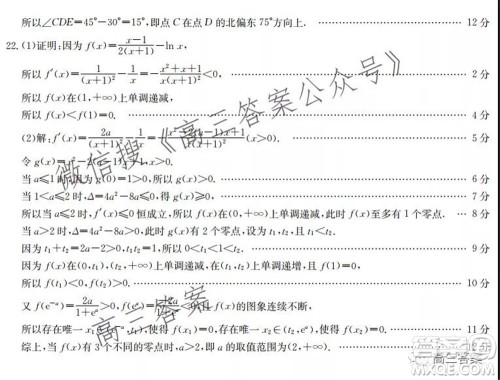 所以∠CDE=45°-30°=15°,即点C在点D的北偏东75°方向上. 12分
22.(1)证明:因为f(x)=\frac{x-1}{2(x+1)}-ln x,
所以f′(x)=\frac{1}{(x+1)²}-\frac{1}{x}=-\frac{x²+x+1}{x(x+1)²}<0, 2分
所以f(x)在(1,+∞)上单调递减,
所以f(x)<f(1)=0. 4分
(2)解:f′(x)=\frac{2a}{(x+1)²}-\frac{1}{x}= (x>0). 5分
令g(x)=x²-2(a-1)x+1,x>0.
当a≤1时,因为g(0)=1>0,所以g(x)>0. 6分
当1<a≤2时,Δ=4a²-8a≤0,得g(x)≥0, 7分
所以当a≤2时,f′(x)≤0恒成立,所以f(x)在(0,+∞)上单调递减,此时f(x)至多有1个零点. 8分
当a>2时,Δ=4a²-8a>0,此时g(x)有2个零点,设为t₁,t₂,且t₁<t₂.
因为t₁+t₂=2a-2>0,t₁t₂=1,所以0<t₁<1<t₂. 9分
因为f(x)在(0,t₁),(t₂,+∞)上单调递减,在(t₁,t₂)上单调递增,且f(1)=0,
所以f(t₁)<0,f(t₂)>0. 10分
又f(e⁻ᵃ)=\frac{2a}{1+eᵃ}>0,f(eᵃ)= <0,且f(x)的图象连续不断,
所以存在唯一x₁∈(e⁻ᵃ,t₁),使得f(x₁)=0,存在唯一x₂∈(t₂,eᵃ),使得f(x₂)=0. 11分
综上,当f(x)有3个不同的零点时,a>2,即a的取值范围为(2,+∞). 12分
微信搜《高三答案公众号》
高三答案
高三答案